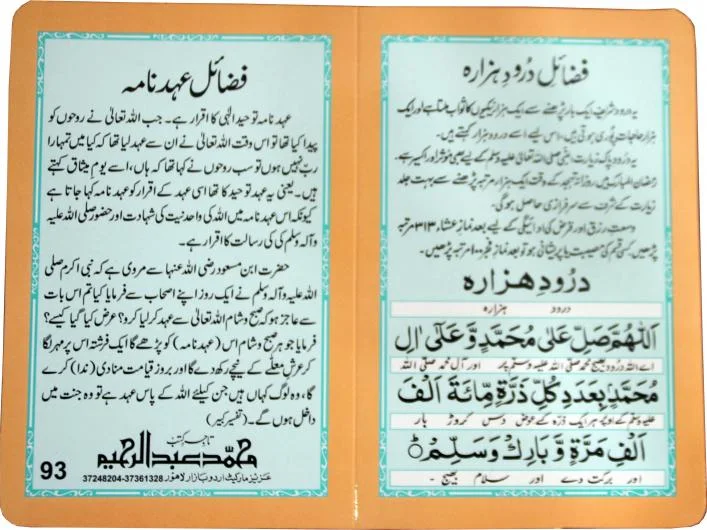 فضائلِ درود ہزارہ
یہ درود شریف ایک بار پڑھنے سے ایک ہزار نیکیوں کا ثواب ملتا ہے اور ایک
ہزار حاجات پوری ہوتی ہیں، اس لیے اسے درود ہزارہ کہتے ہیں۔
یہ درود پاک زیارت النبی صلی اللہ تعالیٰ علیہ وسلم کے لیے بھی مؤثر اور اکسیر ہے۔
رمضان المبارک میں روزانہ تہجد کے وقت ایک ہزار مرتبہ پڑھنے سے بہت جلد
زیارت کے شرف سے سرفرازی حاصل ہوگی۔
وسعتِ رزق اور قرض کی ادائیگی کے لیے بعد نمازِ عشاء ۳۱۳ مرتبہ
پڑھیں۔ کسی قسم کی مصیبت یا پریشانی ہو تو بعد نمازِ فجر ۱۰۰ مرتبہ پڑھیں۔
درود ھزارہ
درود ہزارہ
اَللّٰهُمَّ صَلِّ عَلٰى مُحَمَّدٍ وَّ عَلٰٓى اٰلِ
اے اللہ درود بھیج محمد صلی اللہ علیہ وسلم پر اور آل محمد صلی اللہ
مُحَمَّدٍۢ بِعَدَدِ كُلِّ ذَرَّةٍ مِّائَةَ اَلْفَ
علیہ وسلم کے اوپر ہر ایک ذرہ کے عوض دس کروڑ بار
اَلْفِ مَرَّةٍ وَّ بَارِكْ وَسَلِّمْ ۞
اور برکت دے اور سلام بھیج ۔
فضائل عہد نامہ
عہد نامہ توحید الٰہی کا اقرار ہے۔ جب اللہ تعالیٰ نے روحوں کو
پیدا کیا تھا تو اس وقت اللہ تعالیٰ نے ان سے عہد لیا تھا کہ کیا میں تمہارا
رب نہیں ہوں تو سب روحوں نے کہا تھا کہ ہاں، اسے یومِ میثاق کہتے
ہیں۔ یعنی یہ عہد توحید کا تھا اسی عہد کے اقرار کو عہد نامہ کہا جاتا ہے
کیونکہ اس عہد نامہ میں اللہ کی واحدنیت کی شہادت اور حضور صلی اللہ علیہ
وآلہ وسلم کی کی رسالت کا اقرار ہے۔
حضرت ابن مسعود رضی اللہ عنہا سے مروی ہے کہ نبی اکرم صلی
اللہ علیہ وآلہ وسلم نے ایک روز اپنے اصحاب سے فرمایا کیا تم اس بات
سے عاجز ہو کہ صبح و شام اللہ تعالیٰ سے عہد کر لیا کرو؟ عرض کیا گیا کیسے؟
فرمایا جو ہر صبح و شام اس (عہد نامہ) کو پڑھے گا ایک فرشتہ اس پر مہر لگا
کر عرش معلّٰے کے نیچے رکھ دے گا اور بروز قیامت منادی (ندا) کرے
گا، وہ لوگ کہاں ہیں جن کیلئے اللہ کے پاس عہد ہے تو وہ جنت میں
داخل ہوں گے۔ (تفسیر کبیر)
تاجر کتب
محمد عبدالرحیم
عزیز مارکیٹ اردو بازار لاہور 37248204-37361328
93